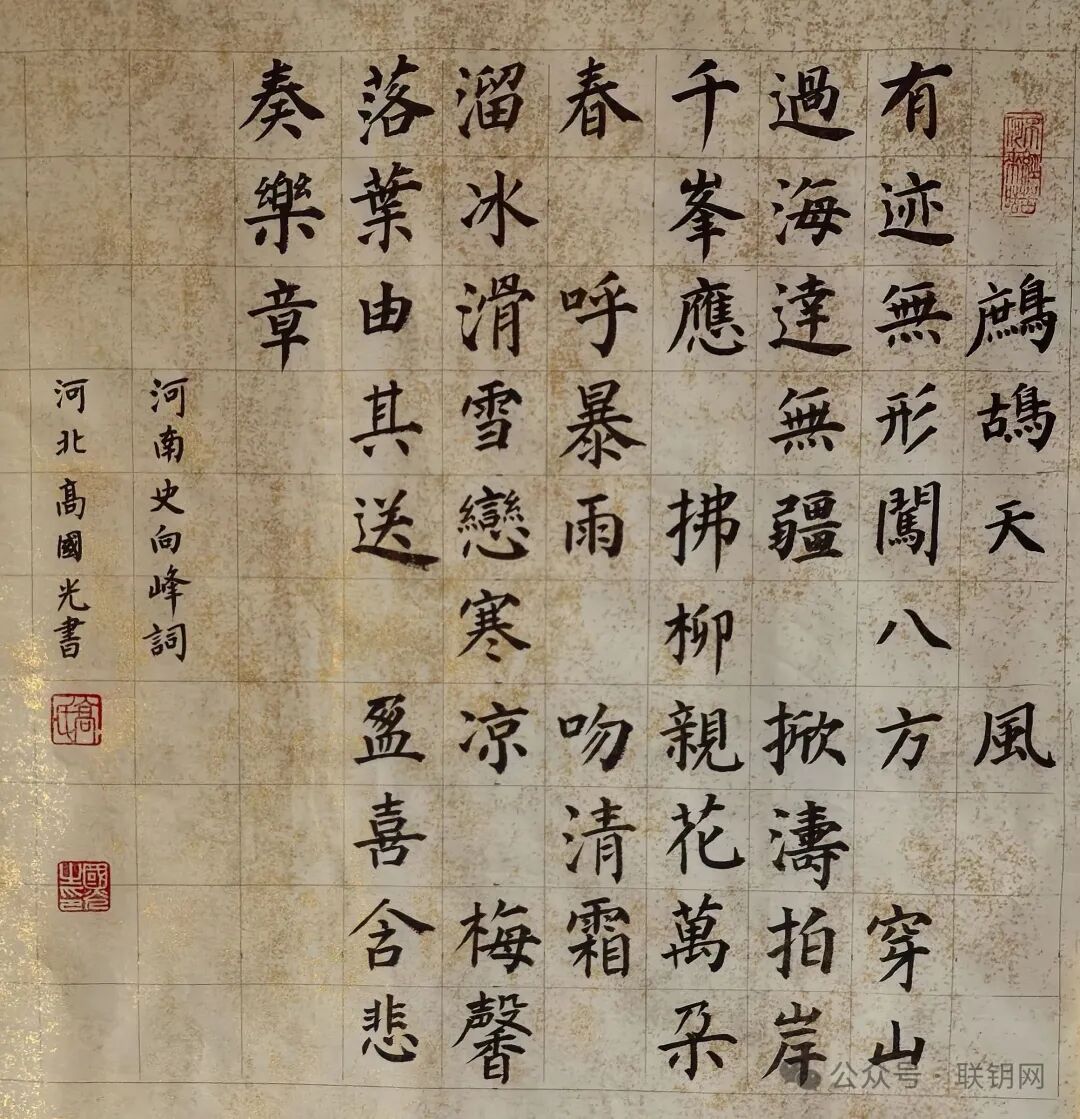 鷓鴣天 風
有迹無形闖八方 穿山
過海達無疆 掀濤拍岸
千峯應 拂柳親花萬朵
春 呼暴雨 吻清霜
溜冰滑雪戀寒凉 梅馨
落葉由其送 盈喜含悲
奏樂章
河南史向峰詞
河北髙國光書
公众号·联钥网